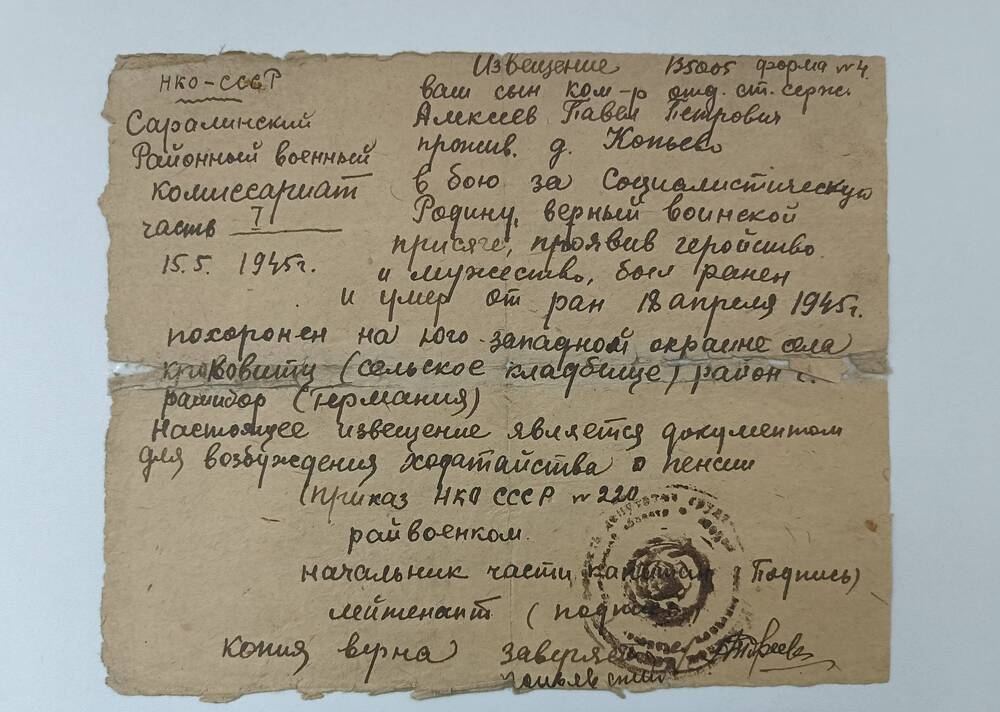 НКО-СССР
Саралинский
Районный военный
комиссариат
часть I
15.5. 1945г.
Извещение В5005 форма №4.
ваш сын ком-р отд. ст. серж.
Алексеев Павел Петрович
прожив. д. Копьево
в бою за Социалистическую
Родину, верный воинской
присяге, проявив геройство
и мужество, был ранен
и умер от ран 18 апреля 1945г.
похоронен на юго-западной окраине села
(сельское кладбище) район г.
ратибор (Германия)
Настоящее извещение является документом
для возбуждения ходатайства о пенсии
(приказ НКО СССР №220
райвоенком.
начальник части капитан Подпись)
лейтенант (подпись)
копия верна заверяет